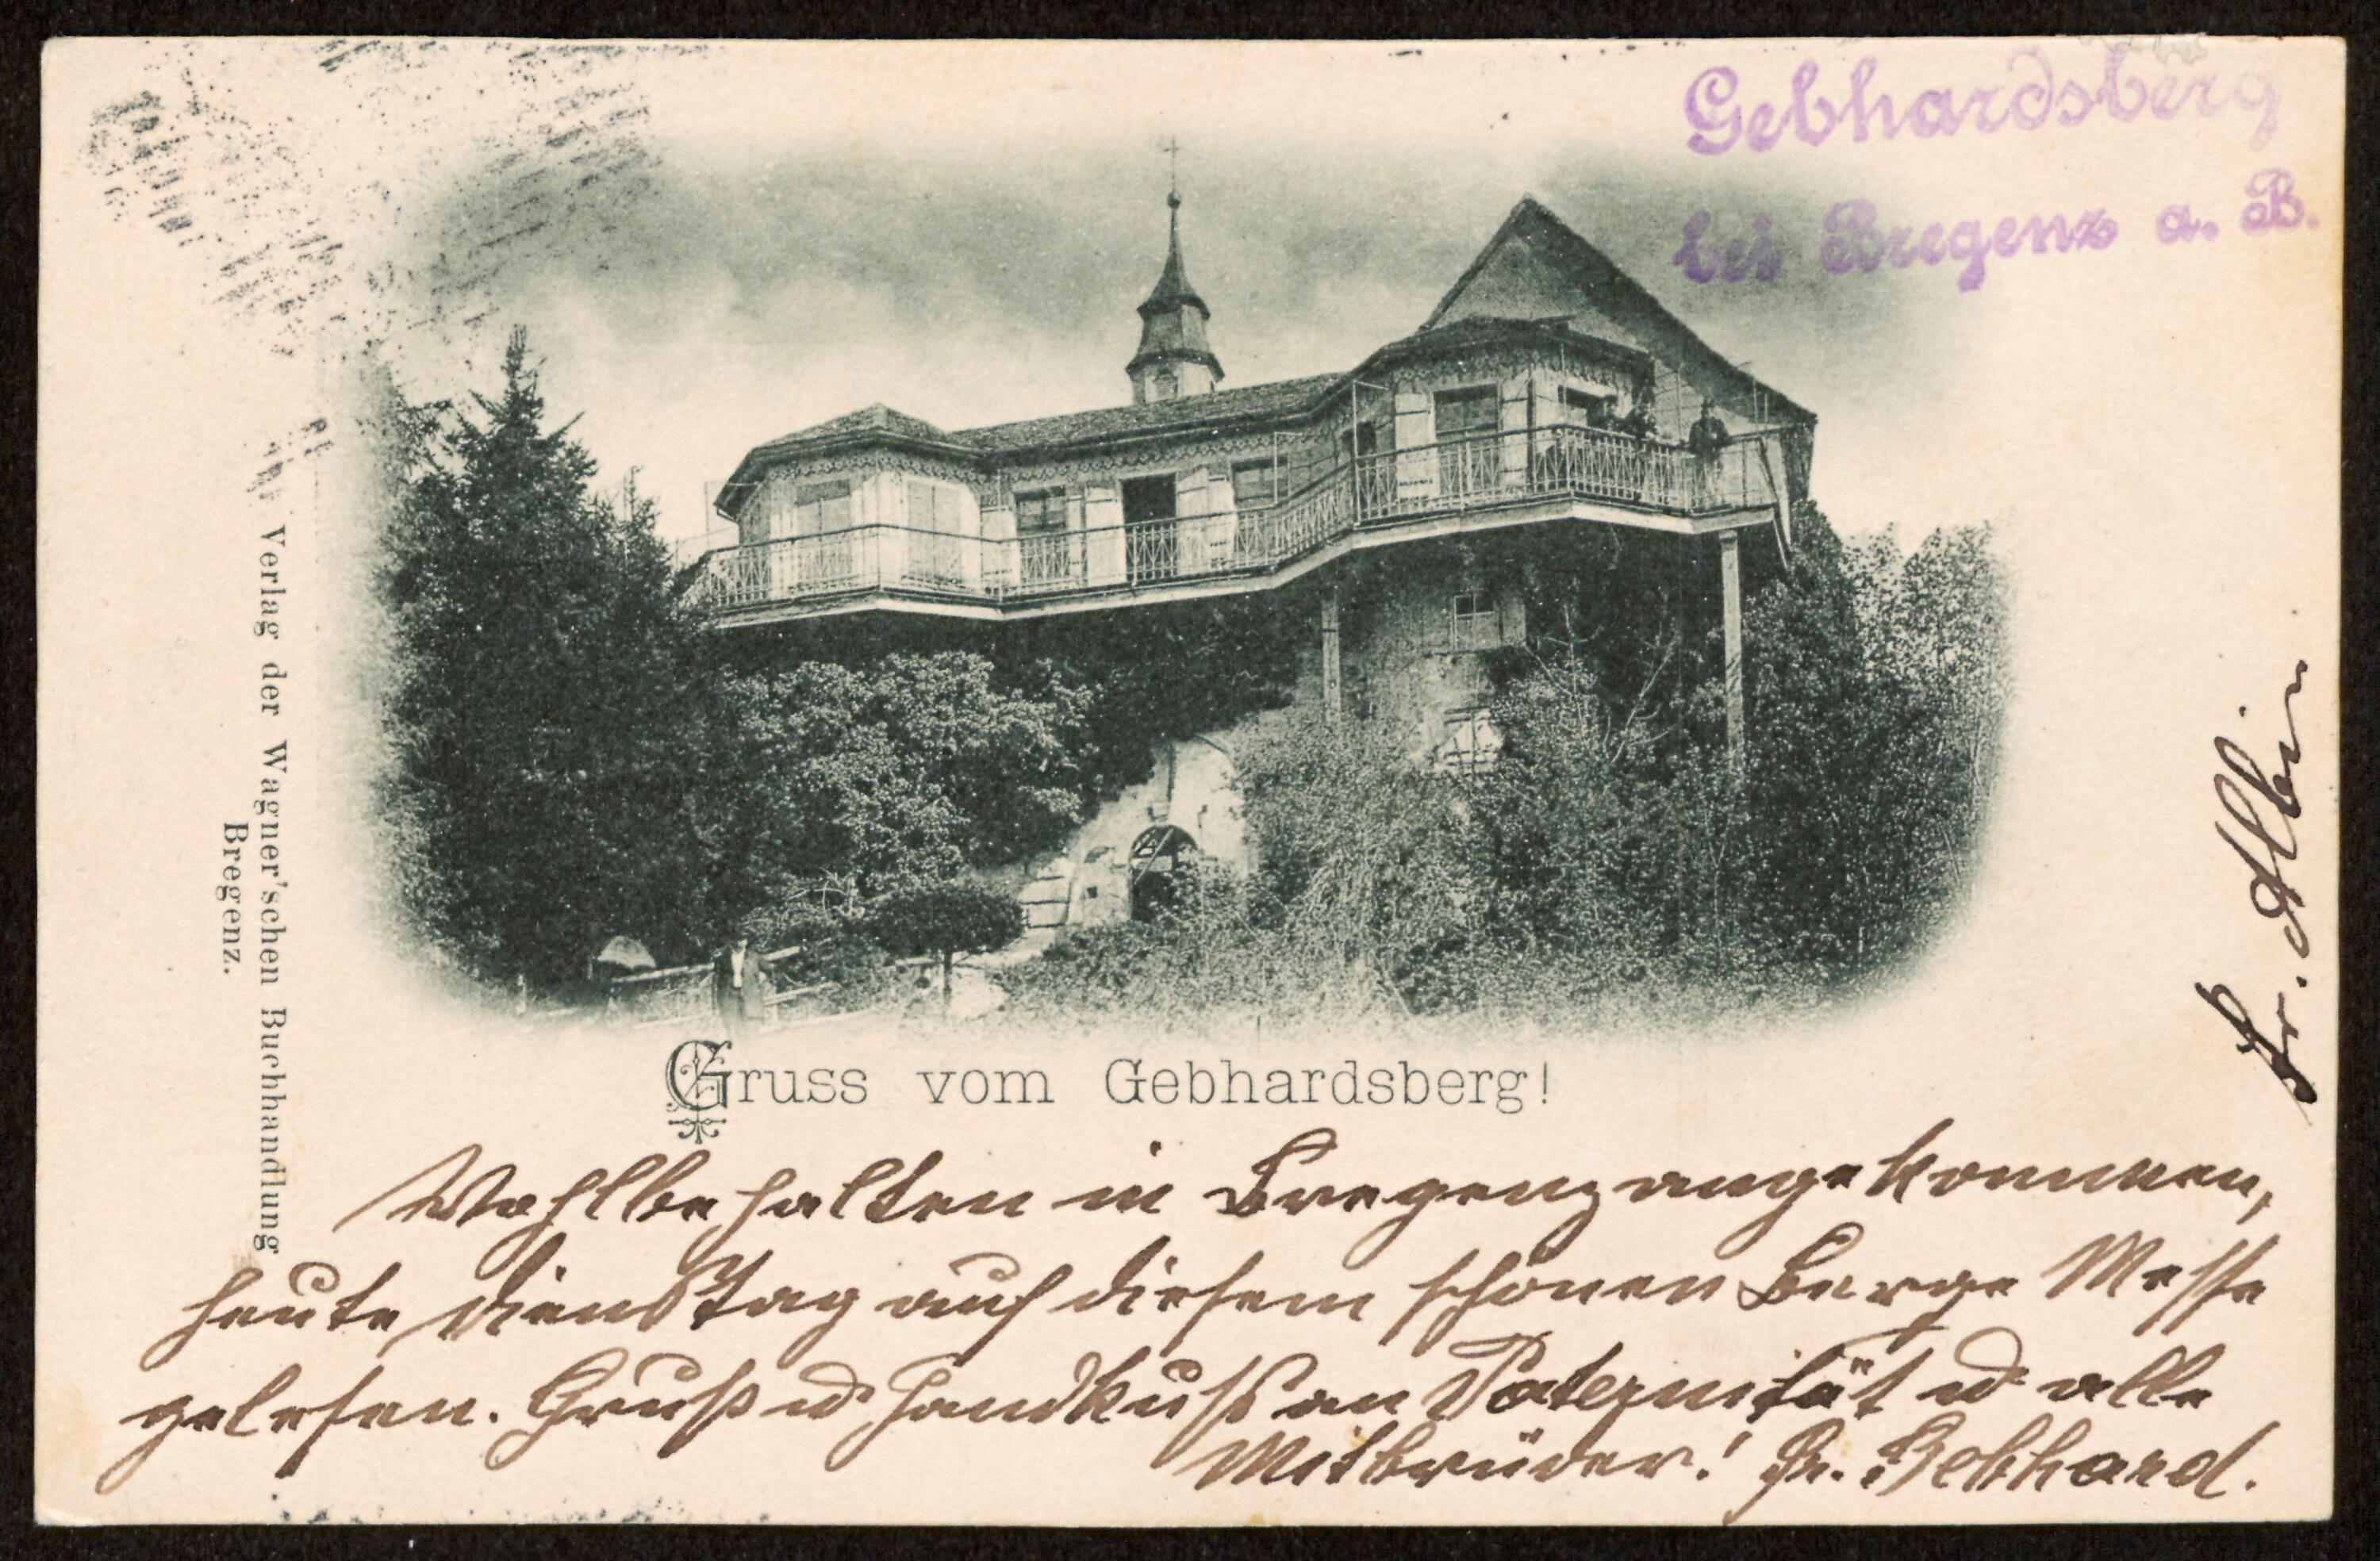 Gebhardsberg
bei Bregenz a. B.
Verlag der Wagner'schen Buchhandlung
Bregenz.
Gruss vom Gebhardsberg!
Wohlbehalten in Bregenz angekommen,
heute Dienstag auf diesem schönen Berge Messe
gelesen. Gruß u Handkuß an Paternität u alle
Mitbrüder! Fr. Gebhard.
Fr. Albin